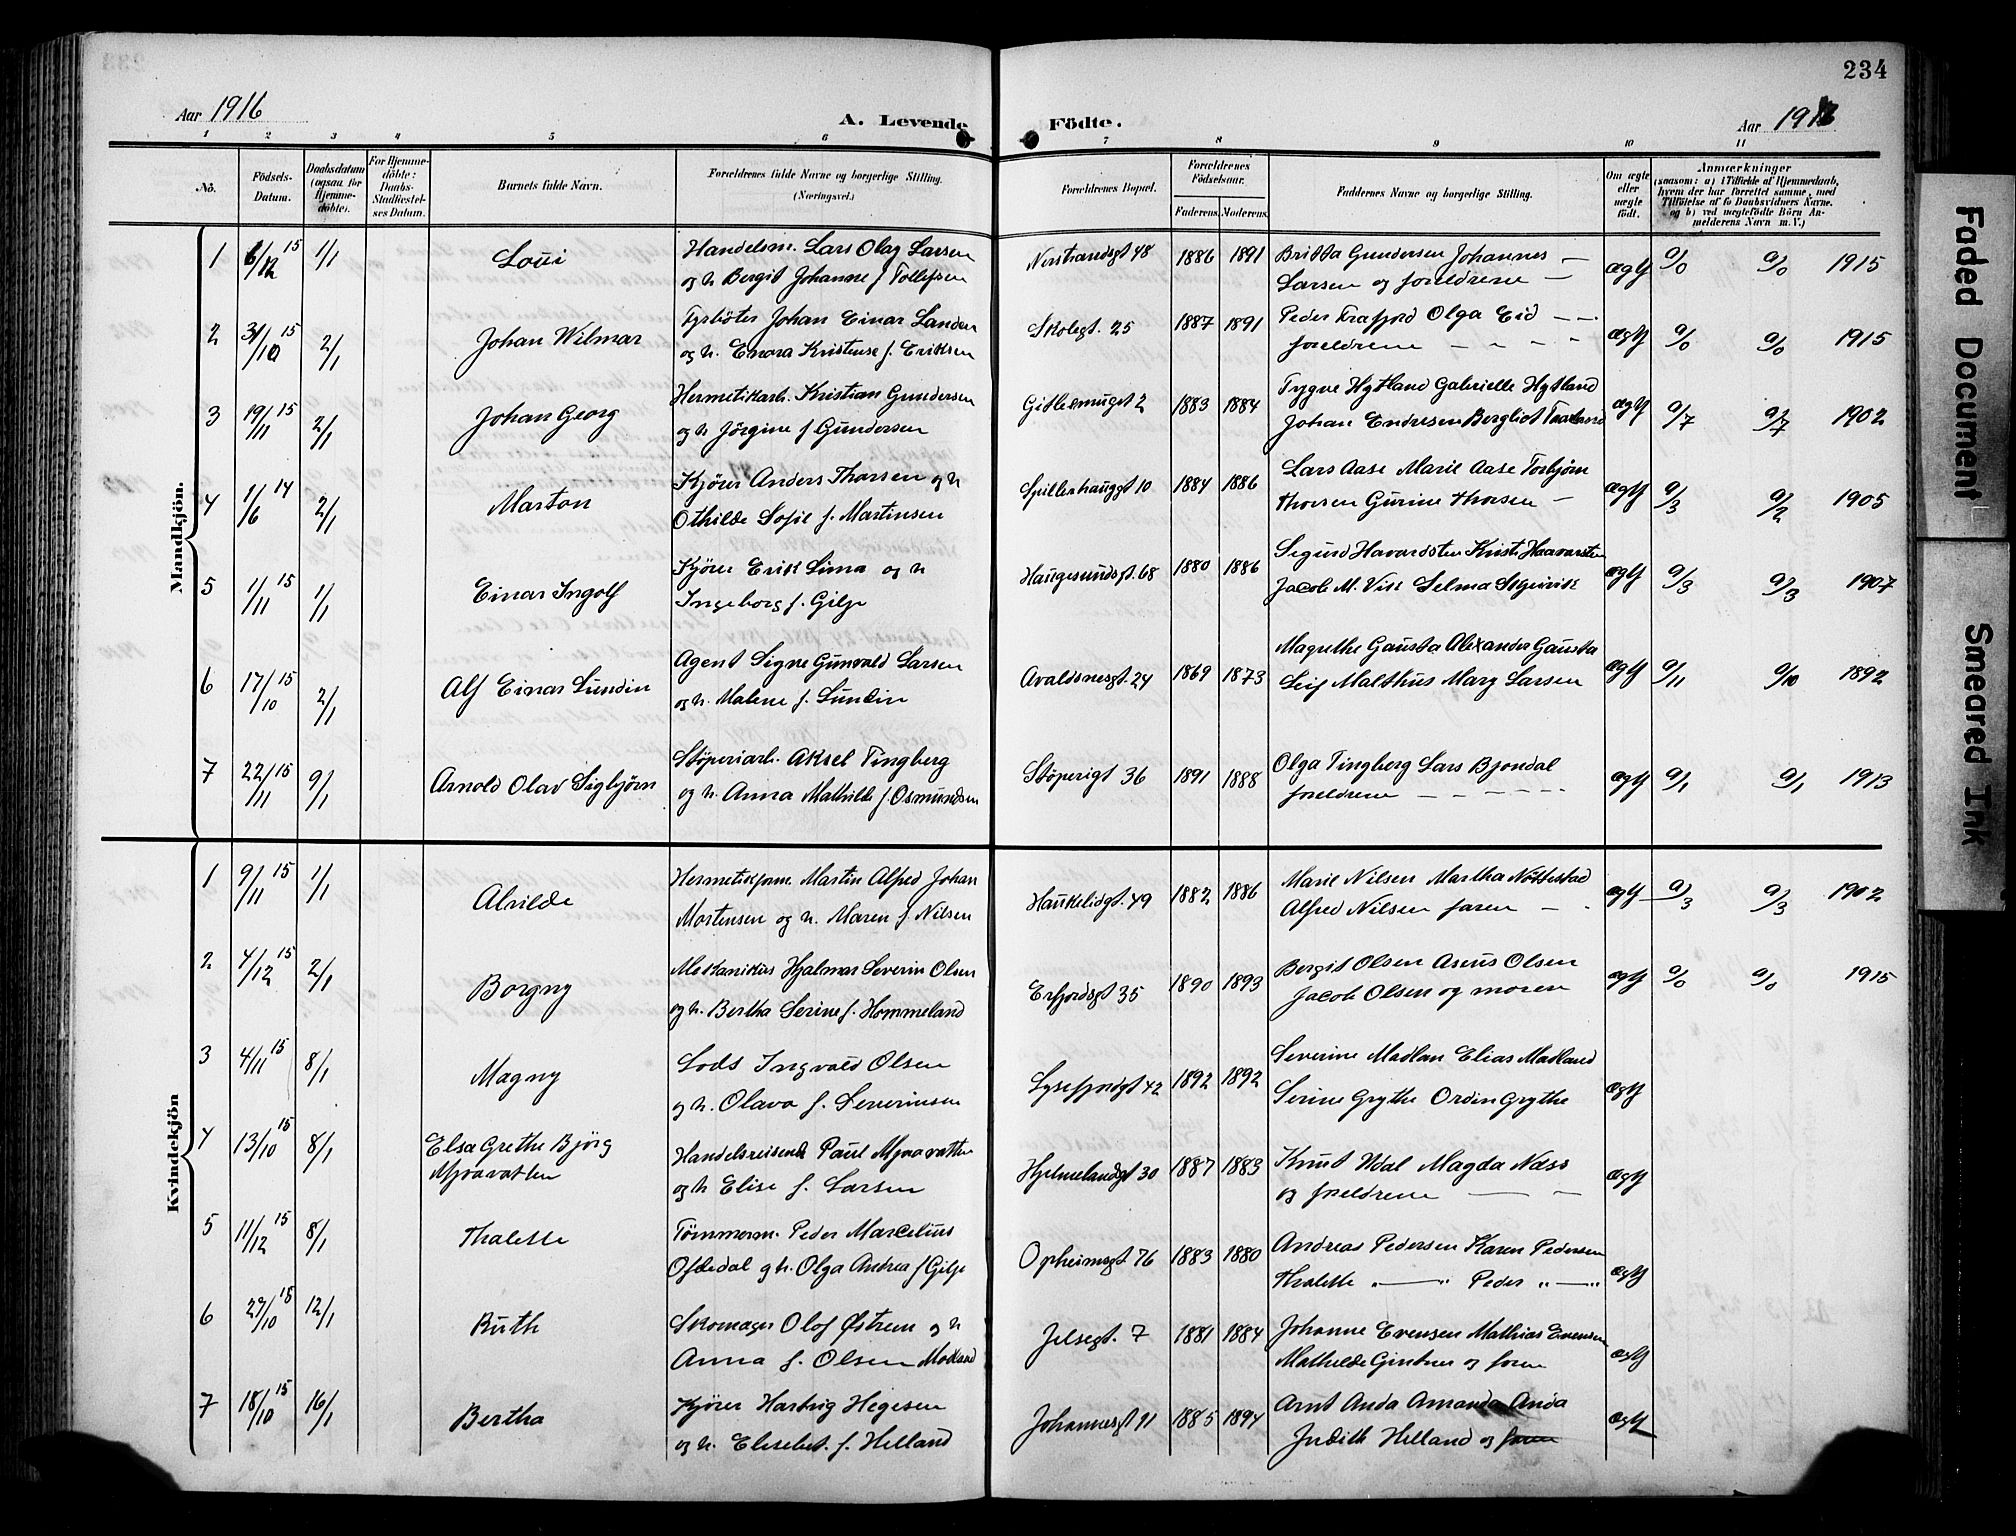 234
Aar 1916
A. Levende Födte.
Aar 1916
1 2 3 4 5 6 7 8 9 10 11
No.
Födsels-
Datum.
Daabsdatum
(ogsaa for
Hjemme-
döbte).
For Hjemme-
döbte:
Daabs-
Stadfæstel-
ses Datum.
Barnets fulde Navn.
Forældrenes fulde Navne og borgerlige Stilling.
(Næringsvei.)
Forældrenes Bopæl.
Forældrenes
Födselsaar.
Faderens. Moderens.
Faddernes Navne og borgerlige Stilling.
Om ægte
eller
uægte
født.
Anmærkninger
(saasom: a) i Tilfælde af Hjemmedaab,
hvem der har forrettet samme, med
Tilföielse af to Daabsvidners Navne.
og b) ved uægtefödte Börn An-
melderens Navn m. V.)
Mandkjön.
1 6/12 15 1/1 Loui
Handelsm. Lars Olag Larsen
og h. Bergit Johanne f Tollefsen
Nerstrandsgt 48 1886 1891
Britta Gundersen Johannes —
Larsen og foreldrene —
ægtf 0/0 0/0 1915
2 31/10 15 2/1 Johan Wilmar
Fyrböter Johan Einar Landen
og h. Enora Kristense f. Eriksen
Skolegt. 25 1887 1891
Peder Frafjord Olga Eid — —
foreldrene — — — —
ægtf 0/0 0/0 1915
3 19/11 15 2/1 Johan Georg
Hermetikarb. Kristian Gundersen
og h. Jörgine f Gundersen
1883 1884
Trygve Hytland Gabrielle Hytland
Johan Endresen Bergliot
ægtf 0/7 0/7 1902
4 1/6 14 2/1 Marton
Kjörer Anders Thorsen og h
Othilde Sofie f. Martinsen
Spillerhauggt 10 1884 1886
Lars Aase Marie Aase Torbjörn
Thorsen Gurine Thorsen —
ægtf 0/3 0/2 1905
5 1/11 15 1/1 Einar Ingolf
Kjörer Erik Lima og h
Ingeborg f. Gilje
Haugesundsgt. 68 1880 1886
Sigurd Havardsten Kristi Haavarsten
Jacob M. Vise Selma
ægtf 0/3 0/3 1907
6 17/10 15 2/1 Alf Einar Lundin
Agent Signe Gunvald Larsen
og h. Malene f. Lundin
Avaldsnesgt. 24 1869 1873
Magrethe Gausta Alexander Gausta
Leif Malthus Mary Larsen
ægtf 0/11 0/10 1892
7 22/11 15 9/1 Arnold Olav Sigbjörn
Stöperiarb. Aksel Tingberg
og h. Anna Mathilde f. Osmundsen
Stöperigt 36 1891 1888
Olga Tingberg Lars Bjondal
foreldrene — — — — —
ægtf 0/1 0/1 1913
Kvindekjön
1 9/11 15 1/1 Alvilde
Hermetikform. Martin Alfred Johan
Mortensen og h. Maren f. Nilsen
Haukelidgt. 49 1882 1886
Marie Nilsen Martha Nöttestad
Alfred Nilsen faren — -
ægtf 0/3 0/3 1902
2 4/12 15 2/1 Borgny
Mekanikus Hjalmar Severin Olsen
og h. Bertha Serine f. Hommeland
Erfjordsgt 35 1890 1893
Bergit Olsen Asius Olsen
Jacob Olsen og moren
ægtf 0/0 0/0 1915
3 4/11 15 8/1 Magny
Lods Ingvald Olsen
og h. Olava f. Severinsen
Lysefjordgt 42 1892 1892
Severine Madlan Elias Madland
Serine Grythe Ordin Grythe
ægtf
4 13/10 15 8/1 Elsa Grethe Bjørg
Mjaavatten
Handelsreisende Paul Mjaavatten
og h Elise f. Larsen
Hjelmelandsgt 30 1887 1883
Knut Udal Magda Næss
og foreldrene — —
ægtf
5 11/12 15 8/1 Thalette
Tömmerm. Peder Marcelius
Ofstedal og h. Olga Andrea f Gilje
Opheimsgt 76 1883 1880
Andreas Pedersen Karen Pedersen
Thalette „ — „ Peder „ — „
ægtf
6 27/10 15 12/1 Ruth
Skomager Olof Østrem og h
Anna f. Olsen Modland
Jelsegt. 7 1881 1884
Johanne Evensen Mathias Evensen
Mathilde Gintner og faren
ægtf
7 18/10 15 16/1 Bertha
Kjörer Hartvig Hegesen
og h. Elisebet. f. Helland
Johannesgt 91 1885 1894
Arnt Anda Amanda Anda
Judith Helland og faren
ægtf
Faded Document
Smeared Ink